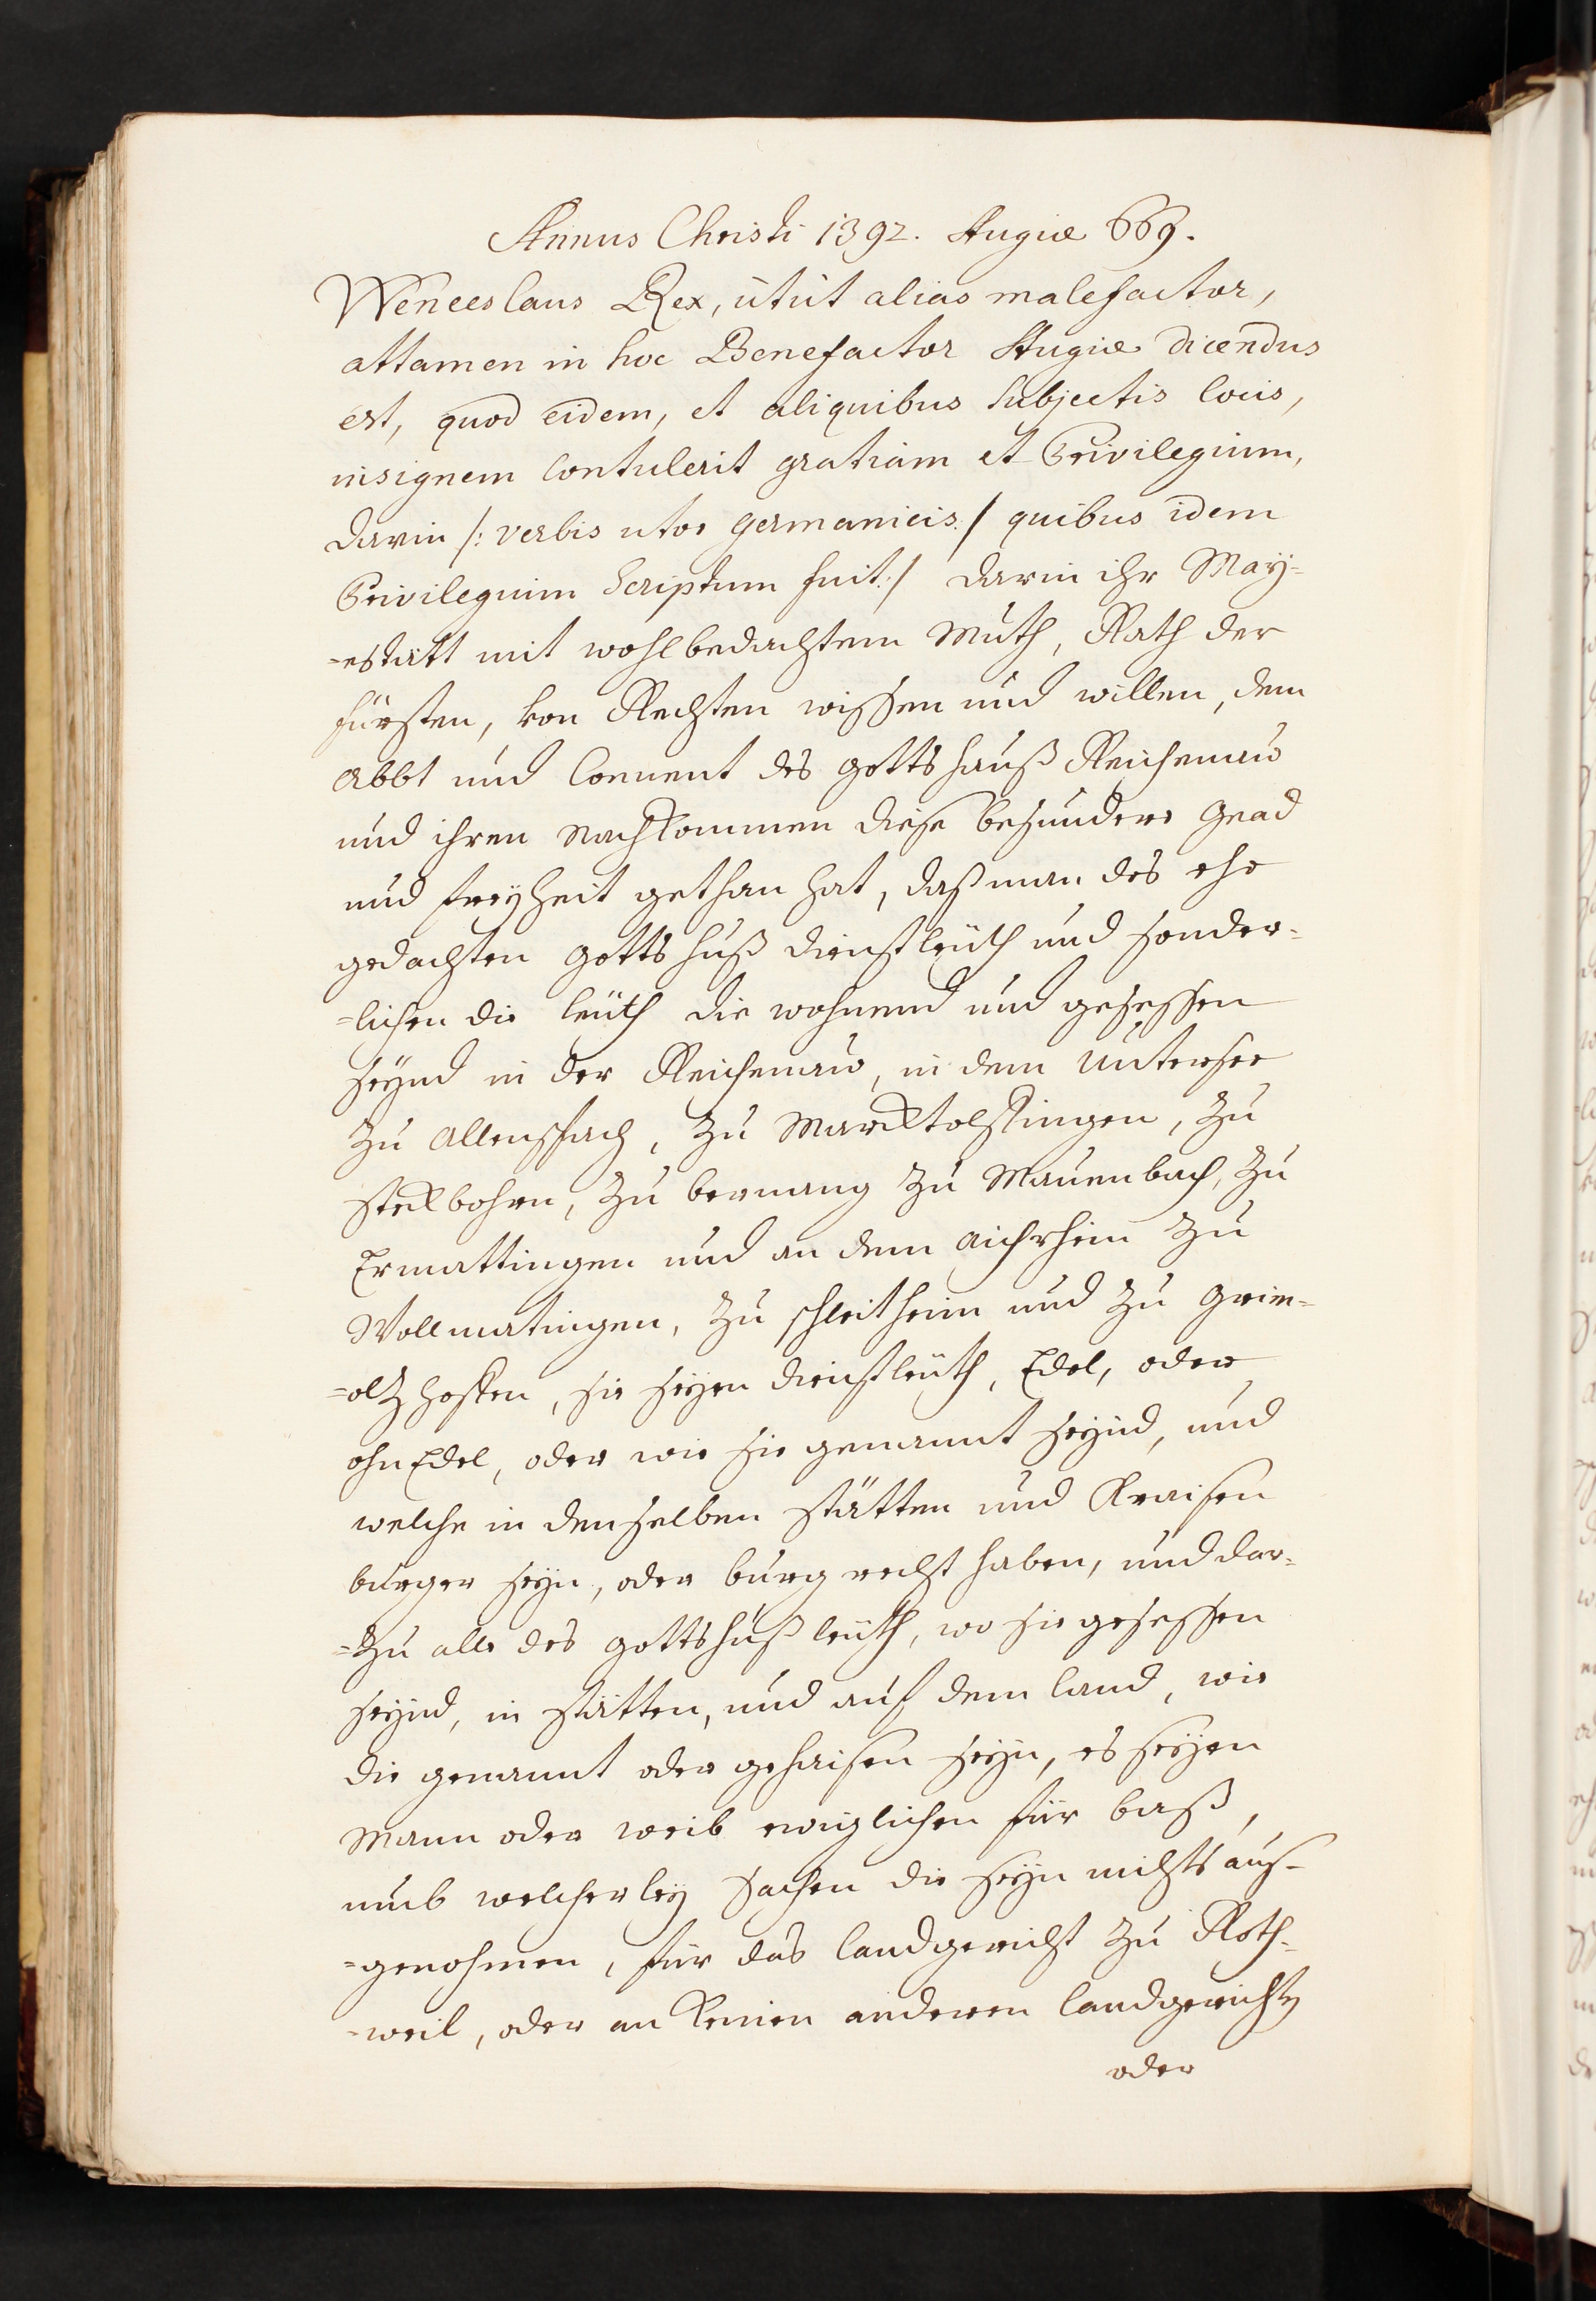 Annus Christi 1392. Augiæ 669.
Wenceslaus Rex, utut alias malefactor,
attamen in hoc Benefactor Augiæ dicendus
est, quod eidem, et aliquibus subjectis locis,
insignem Contulerit gratiam et Privilegium,
darin /: verbis utor germanicis / quibus idem
Privilegium Scriptum fuit:/ darin ihr May=
=estätt mit wohlbedachtem Muth, Rath der
fürsten, von Rechten wissen und willen, dem
Abbt und Convent des gottshauß Reichenaw
und ihren Nachkommen diese besundere Gnad
und freyheit gethan hat, daß man des ehe
gedachten gottshuß dienstleüth und sonder=
=lichen die leüth die wohnend und gesessen
seynd in der Reichenaw, in dem Untersee
zu Allenspach, zu Marcktolffingen, zu
Steckbohrn, zu bernang zu Mauenbach, zu
Ermattingen und an dem Aichrhein zu
Wollmatingen, zu schleitheim und zu Grim=
=oltzhoffen, sie seyen dienstleüth, Edel, oder
ohn Edel, oder wie sie genannt seynd, und
welche in denselben stätten und Kraisen
burger seyn, oder burgrecht haben, und dar=
=zu alle des gottshuß leüth, wo sie gesessen
seynd, in stätten, und auf dem land, wie
die genannt oder gehaisen seyn, es seyen
Mann oder weib ewiglichen für baß,
umb welcherley sachen die seyn nichts aus=
=genohmen, für das landgericht zu Roth=
=weil, oder an keinen anderen landgericht
oder